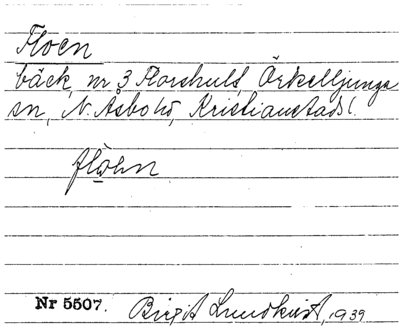 Floen
bäck, nr 3 Florshult, Örkelljunga
sn, N. Åsbo hd, Kristianstads l.
flöhn
Nr 5507. Birgit Lundkvist, 1939